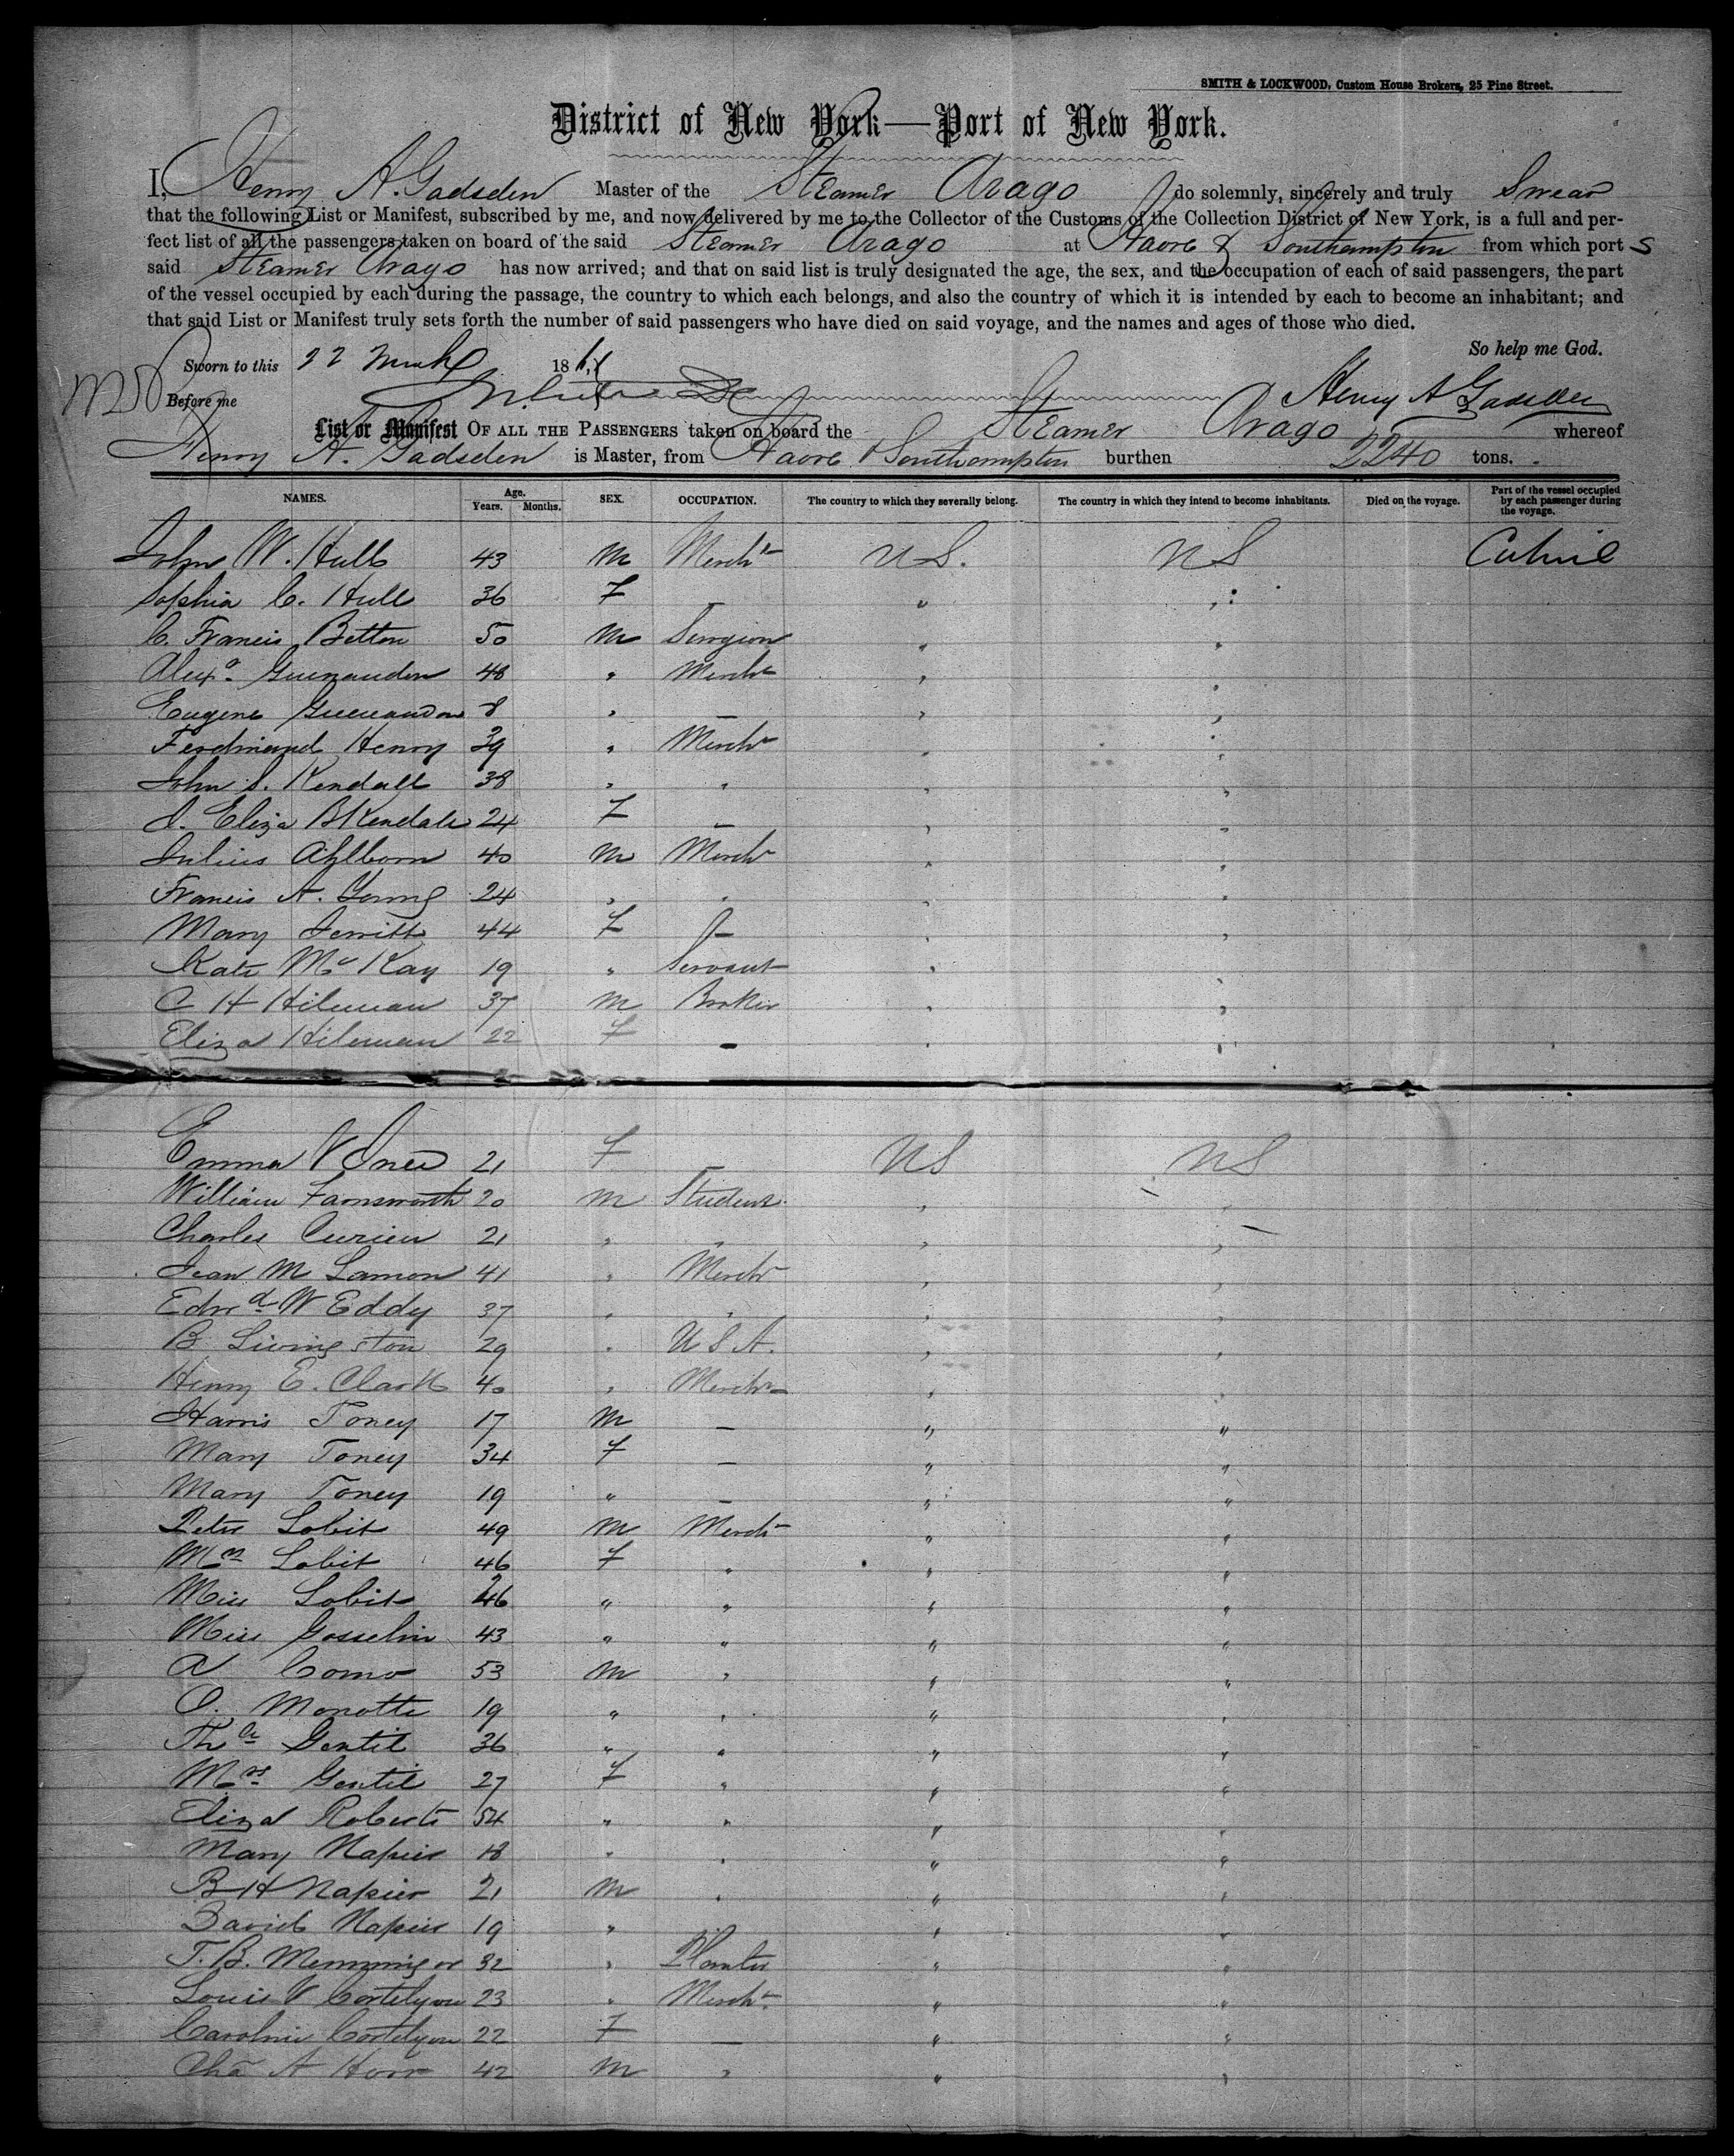 SMITH & LOCKWOOD, Custom House Brokers, 25 Pine Street.
District of New York—Port of New York.
I, Henry A. Gadsden Master of the Steamer Arago do solemnly, sincerely and truly Swear
that the following List or Manifest, subscribed by me, and now delivered by me to the Collector of the Customs of the Collection District of New York, is a full and per-
fect list of all the passengers taken on board of the said Steamer Arago at Havre & Southampton from which port s
said Steamer Arago has now arrived; and that on said list is truly designated the age, the sex, and the occupation of each of said passengers, the part
of the vessel occupied by each during the passage, the country to which each belongs, and also the country of which it is intended by each to become an inhabitant; and
that said List or Manifest truly sets forth the number of said passengers who have died on said voyage, and the names and ages of those who died.
So help me God.
Sworn to this 22 March 1861
Before me Henry A Gadsden
List or Manifest OF ALL THE PASSENGERS taken on board the Steamer Arago whereof
Henry A. Gadsden is Master, from Havre & Southampton burthen 2240 tons.
NAMES. Age. Years. Months. SEX. OCCUPATION. The country to which they severally belong. The country in which they intend to become inhabitants. Died on the voyage. Part of the vessel occupied by each passenger during the voyage.
John W. Hull 43 M Mercht US. US Cabine
Sophia C. Hull 36 F — " "
C. Francis Betton 50 M Surgeon " "
Alexa. 48 " Mercht " "
Eugene 8 " — " "
Ferdinand Henry 39 " Mercht " "
John S. Kendall 38 " " " "
J. Eliza B Kendall 24 F — " "
Julius Ahlborn 40 M Mercht " "
Francis A. Young 24 " " " "
Mary Jerritt 44 F — " "
Kate Mc Kay 19 " Servant " "
C H Hileman 37 M Broker " "
Eliza Hileman 22 F — " "
Emma V Ines 21 F — US US
William Farnsworth 20 M Student " "
Charles Curien 21 " " " "
Jean M Lamon 41 " Mercht " "
Edwd W Eddy 37 " " " "
B. Livingston 29 " U S A. " "
Henry E. Clark 40 " Mercht " "
Harris Toney 17 M — " "
Mary Toney 34 F — " "
Mary Toney 19 " — " "
Peter Lobit 49 M Mercht " "
Mrs Lobit 46 F " " "
Miss Lobit " " " "
Miss Gosselin 43 " " " "
A Como 53 M " " "
O. Monotti 19 " " " "
Gentil 36 " " " "
Mrs Gentil 27 F " " "
Eliza Roberts 54 " " " "
Mary Napier 18 " " " "
B H Napier 21 M " " "
David Napier 19 " " " "
T. B. Memminger 32 " Planter " "
Louis V Cortelyou 23 " Mercht " "
Caroline Cortelyou 22 F — " "
Cha A Horr 42 M " " "